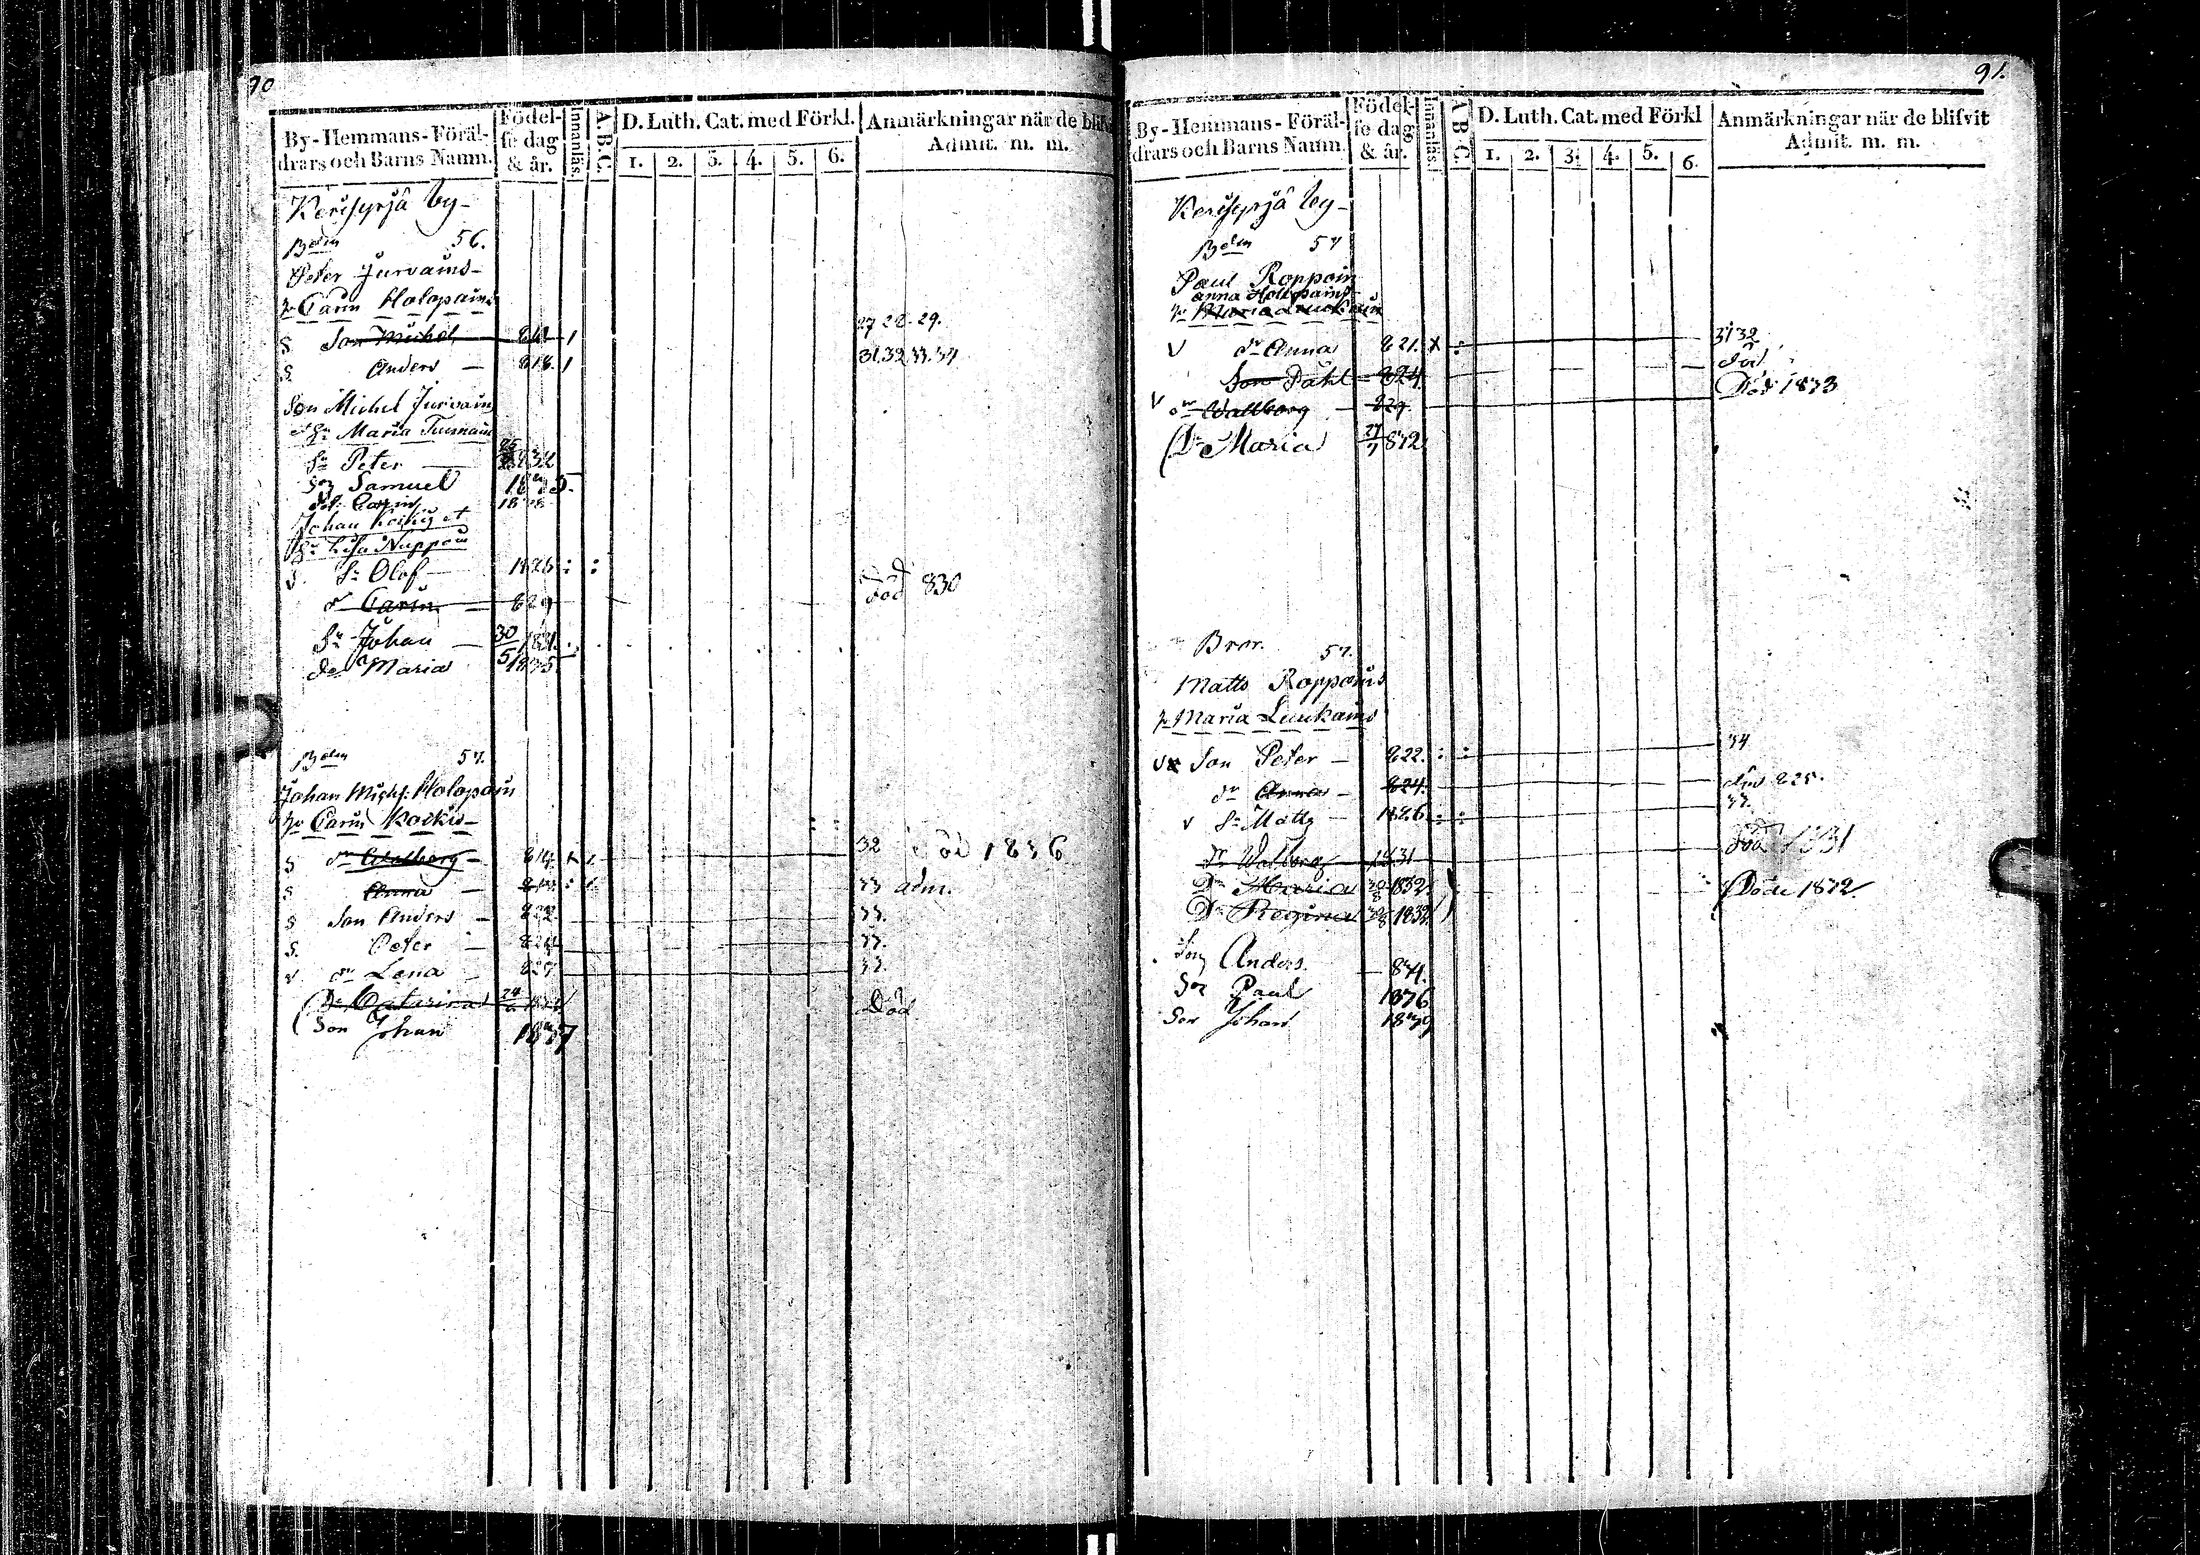 90
By-Hemmans-Föräl-
drars och Barns Namn.
Födel-
se dag
& år.
Innanläs.
A.B.C.
D. Luth. Cat. med Förkl.
1. 2. 3. 4. 5. 6.
Anmärkningar när de blifv
Admit. m. m.
by-
56.
Peter Jurvains-
Carin Holopains
S Son Michel 811 27 28. 29.
S. Anders - 818. 31.32.33.34
Son Michel Jurvain
Maria
Sn Peter 832
Son Samuel
Johan
Lisa Nuppoin
S. Sn Olof - 1826 : :
dr Carin - 829 död 830
Sn Johan - 30/5 1831.
Maria 1835.
57.
Johan Mich: Holopain
Carin Koikin-
S dr Walborg - 814 32 död 1836
S Anna - 33 adm.
S Son Anders - 822 33.
S. Peter - 824 33.
v dr Lena - 827 33.
Dr Catarina Död
Son Johan 1837
91.
By-Hemmans-Föräl-
drars och Barns Namn.
Födel-
se dag
& år.
Innanläs.
A B C.
D. Luth. Cat. med Förkl
1. 2. 3. 4. 5. 6.
Anmärkningar när de blifvit
Admit. m. m.
by-
57
Paul Roppoin
Anna Holopains
Maria
V dr Anna 821. x : 31 32
Son Påhl - 824 död
V dr Wallborg - 829. Död 1833
Dr Maria 832
Bror. 57.
Matts Roppoins
Maria Laukains
v Son Peter - 822. : : 34
dr Anna - 824. död 825.
v Sn Matts - 1826 : : 33.
dr Walborg 1831 död 1831
Dr Maria 1832. Döde 1832.
Dr Regina 1832.
Son Anders. - 834.
Son Paul 1836
Son Johan 1839